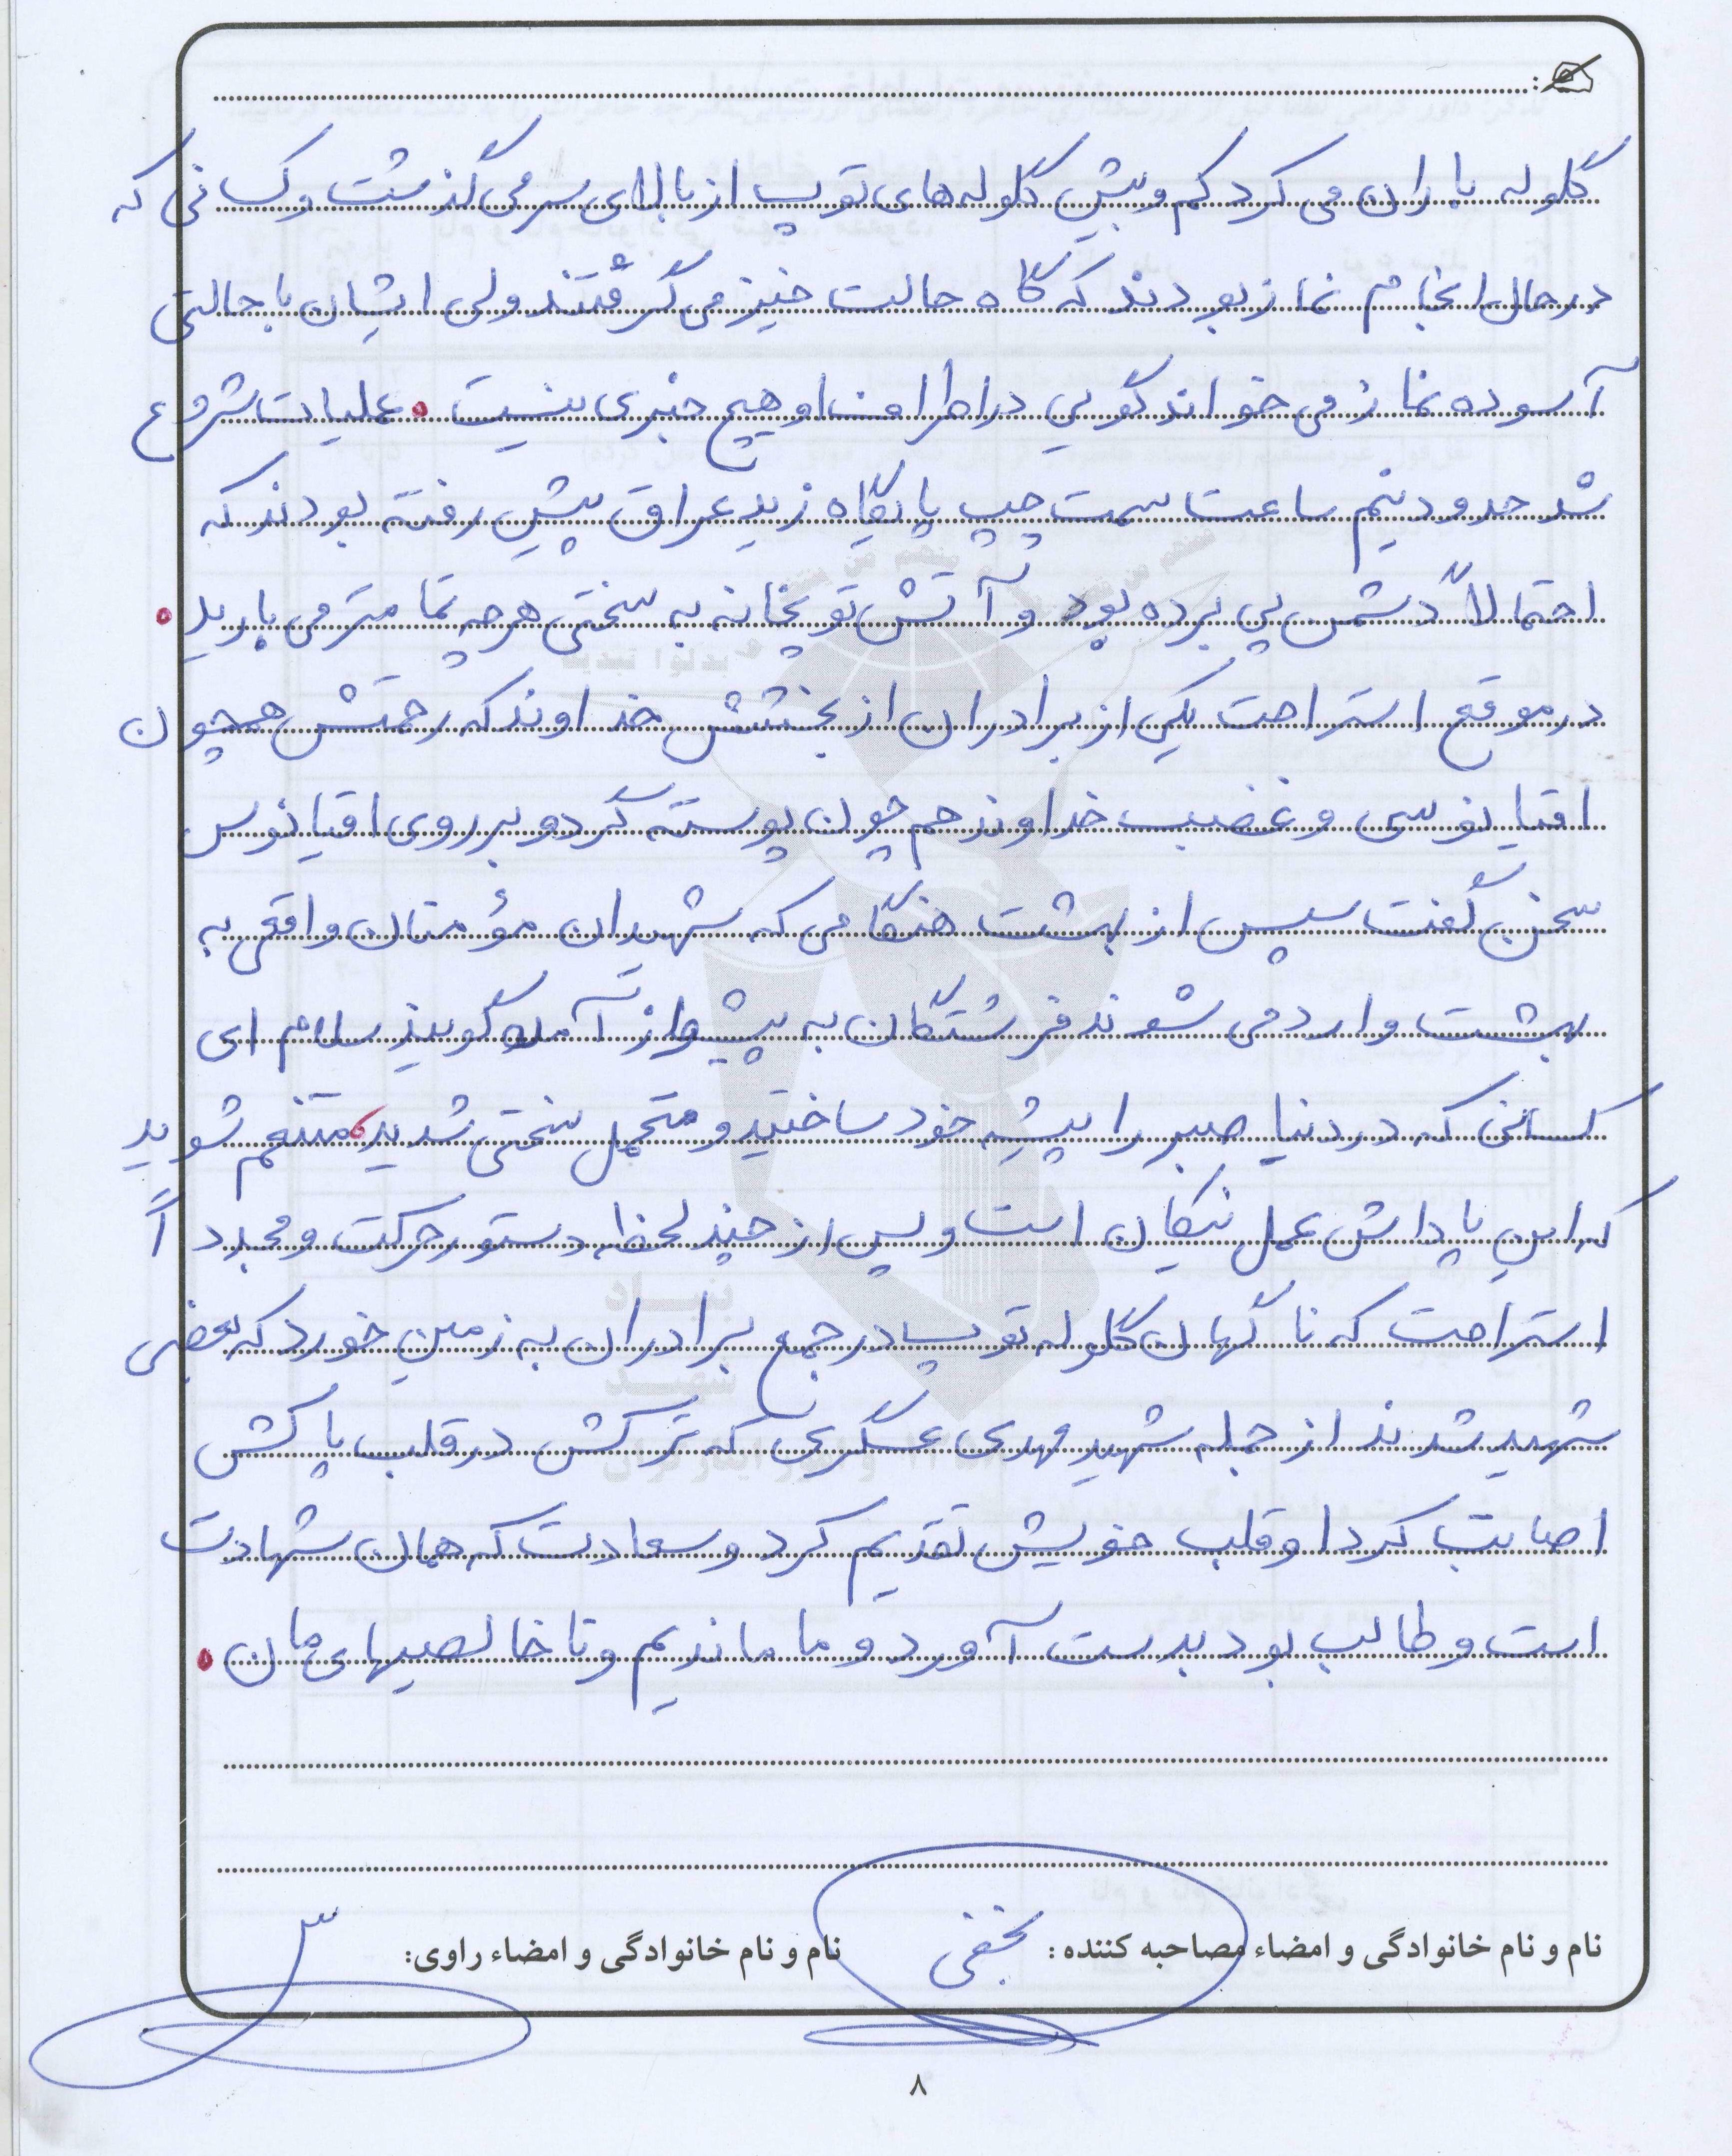 گلوله باران می کرد کم و بیش گلوله های توپ از بالای سر می گذشت و کسانی که
در حال انجام نماز بودند که گاه حالت خیز می گرفتند ولی ایشان با حالتی
آسوده نماز می خواند گویی در اطراف او هیچ خبری نیست. عملیات شروع
شد حدود نیم ساعت سمت چپ پایگاه زید عراق پیش رفته بودند که
احتمالاً دشمن پی برده بود و آتش توپخانه به سختی هر چه تمامتر می بارید.
در موقع استراحت یکی از برادران از بخشش خداوند که رحمتش همچون
اقیانوسی و غضب خداوند هم چون پوسته گردو بر روی اقیانوس
سخن گفت سپس از بهشت هنگامی که شهیدان مؤمنان واقعی به
بهشت وارد می شوند فرشتگان به پیشواز آمده گویند سلام ای
کسانی که در دنیا صبر را پیشه خود ساختید و متحمل سختی شدید، متنعم شوید
که این پاداش عمل نیکان است و پس از چند لحظه دستور حرکت و مجدداً
استراحت که ناگهان گلوله توپ در جمع برادران به زمین خورد که بعضی
شهید شدند از جمله شهید مهدی عسگری که ترکش در قلب پاکش
اصابت کرد او قلب خویش تقدیم کرد و سعادت که همان شهادت
است و طالب بود بدست آورد و ما ماندیم و نا خالصیهای مان.
نام و نام خانوادگی و امضاء مصاحبه کننده: نجفی نام و نام خانوادگی و امضاء راوی:
۸